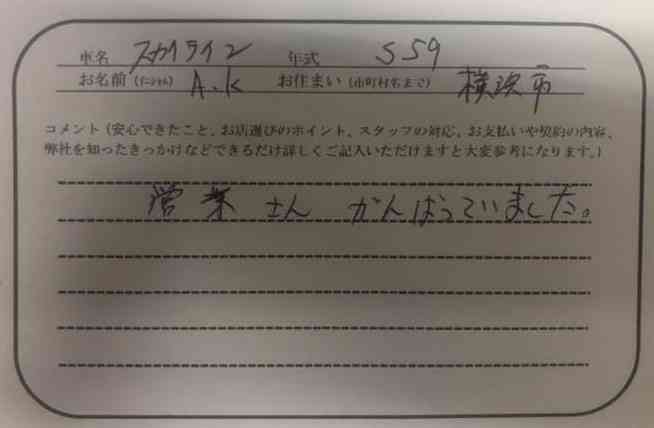 車名 スカイライン 年式 S59
お名前(イニシャル) A.K お住まい(市町村名まで) 横浜市
コメント(安心できたこと、お店選びのポイント、スタッフの対応、お支払いや契約の内容、
弊社を知ったきっかけなどできるだけ詳しくご記入いただけますと大変参考になります。)
営業さん がんばっていました。